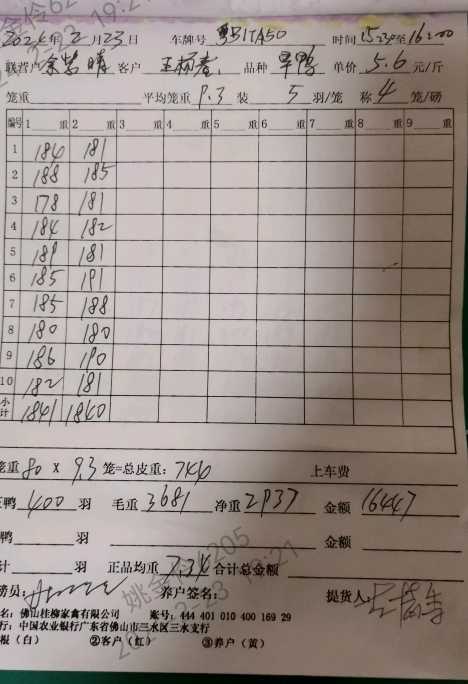 2026年2月23日 车牌号 粤BITA50 时间15:20至16:00
联营户 客户 王 品种 旱鸭 单价 5.6 元/斤
笼重 平均笼重 9.3 装 5 羽/笼 称 4 笼/磅
编号 1 重 2 重 3 重 4 重 5 重 6 重 7 重 8 重 9 重
1 184 181
2 188 185
3 178 181
4 184 182
5 189 181
6 185 191
7 185 188
8 180 180
9 186 190
10 182 181
小计 1841 1840
笼重 80 X 9.3 笼=总皮重: 744 上车费
鸭 400 羽 毛重 3681 净重 2937 金额 16447
鸭 羽 金额
计 羽 正品均重 7.34 合计总金额
员: 养户签名: 提货人:
名: 佛山桂柳家禽有限公司 账号: 444 401 010 400 169 29
行: 中国农业银行广东省佛山市三水区三水支行
根(白) ②客户(红) ③养户(黄)